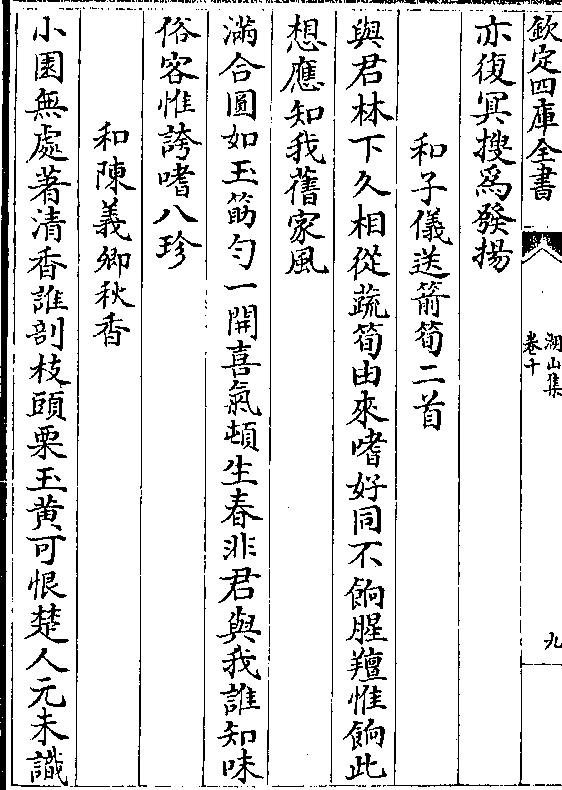 欽定四庫全書
湖山集
卷十
九
亦復冥搜為發揚
和子儀送箭筍二首
與君林下久相從蔬筍由來嗜好同不餉腥羶惟餉此
想應知我舊家風
滿合圓如玉筯勻一開喜氣頓生春非君與我誰知味
俗客惟誇嗜八珍
和陳義卿秋香
小園無處著清香誰剖枝頭栗玉黄可恨楚人元未識